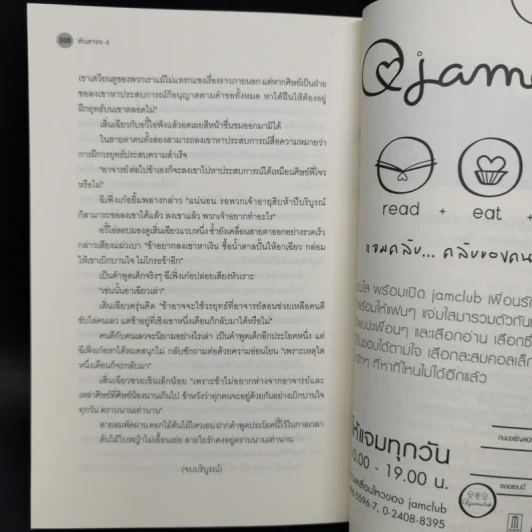 308 พันสารท 4
เขาเสวียนตูของพวกเราแม้ไม่แทรกแซงเรื่องราวภายนอก แต่หากศิษย์เป็นฝ่าย
ขอลงเขาหาประสบการณ์ก็อนุญาตตามคำขอทั้งหมด หาได้ฝืนให้ต้องอยู่
ฝึกยุทธ์บนเขาตลอดไม่"
เสิ่นเฉียวกับอวี้ไอ่ฟังแล้วอดเผยสีหน้าชื่นชมออกมามิได้
ในสายตาคนทั้งสองสามารถลงเขาหาประสบการณ์สื่อความหมายว่า
การฝึกวรยุทธ์ประสบความสำเร็จ
"อาจารย์ ต่อไปข้าเองก็จะลงเขาไปหาประสบการณ์ได้เหมือนศิษย์พี่ใจว
หรือไม่"
ฉีเฟิ่งเก๋อยิ้มพลางกล่าว "แน่นอน รอพวกเจ้าอายุสิบห้าปีบริบูรณ์
ก็สามารถขอลงเขาได้แล้ว ลงเขาแล้ว พวกเจ้าอยากทำอะไร"
อวี้ไอ่ลอบมองดูเสิ่นเฉียวแวบหนึ่ง ซ้ำยังเคลื่อนสายตาออกอย่างรวดเร็ว
กล่าวเสียงแผ่วเบา "ข้าอยากลงเขาหาเงิน ซื้อน้ำตาลปั้นให้อาเฉียว กล่อม
ให้เขาเบิกบานใจ ไม่โกรธข้าอีก"
เป็นคำพูดเด็กจริงๆ ฉีเฟิ่งเก๋อปล่อยเสียงหัวเราะ
"เช่นนั้นอาเฉียวเล่า"
เสิ่นเฉียวครุ่นคิด "ข้าอาจจะใช้วรยุทธ์ที่อาจารย์สอนช่วยเหลือคนดี
ขับไล่คนเลว แต่ข้าอยู่ที่เชิงเขาหนึ่งเดือนก็กลับมาได้หรือไม่"
คนดีกับคนเลวจะนิยามอย่างไรเล่า เป็นคำพูดเด็กอีกประโยคหนึ่ง แต่
ฉีเฟิ่งเก๋อหาได้หมดสนุกไม่ กลับซักถามต่อด้วยความอ่อนโยน "เพราะเหตุใด
หนึ่งเดือนก็จะกลับมา"
เสิ่นเฉียวขวยเขินเล็กน้อย "เพราะข้าไม่อยากห่างจากอาจารย์และ
เหล่าศิษย์พี่ศิษย์น้องนานเกินไป ข้าหวังว่าทุกคนจะอยู่ด้วยกันอย่างเบิกบานใจ
ทุกวัน ตราบนานเท่านาน"
สายลมพัดผ่าน ดอกไม้ต้นไม้ไหวเอน ฝากคำพูดประโยคนี้ไว้ในกาลเวลา
ต้นไม้ใบหญ้าไม่เอื้อนเอ่ย สายใยรักคงอยู่ตราบนานเท่านาน
(จบบริบูรณ์)
jamc
read + eat +
แจมคลับ... คลับของคน
พร้อมเปิด jamclub เพื่อนรัก
ร้อมให้แฟนๆ แจ่มใสมารวมตัวกัน
และเลือกอ่าน เลือกซื้อ
ชอบได้ตามใจ เลือกสะสมคอลเล็ก
รักๆ ที่หาที่ไหนไม่ได้อีกแล้ว
ให้แจมทุกวัน
0.00 - 19.00 น.
ความเคลื่อนไหวของ jamclub
5596-7, 0-2408-8395